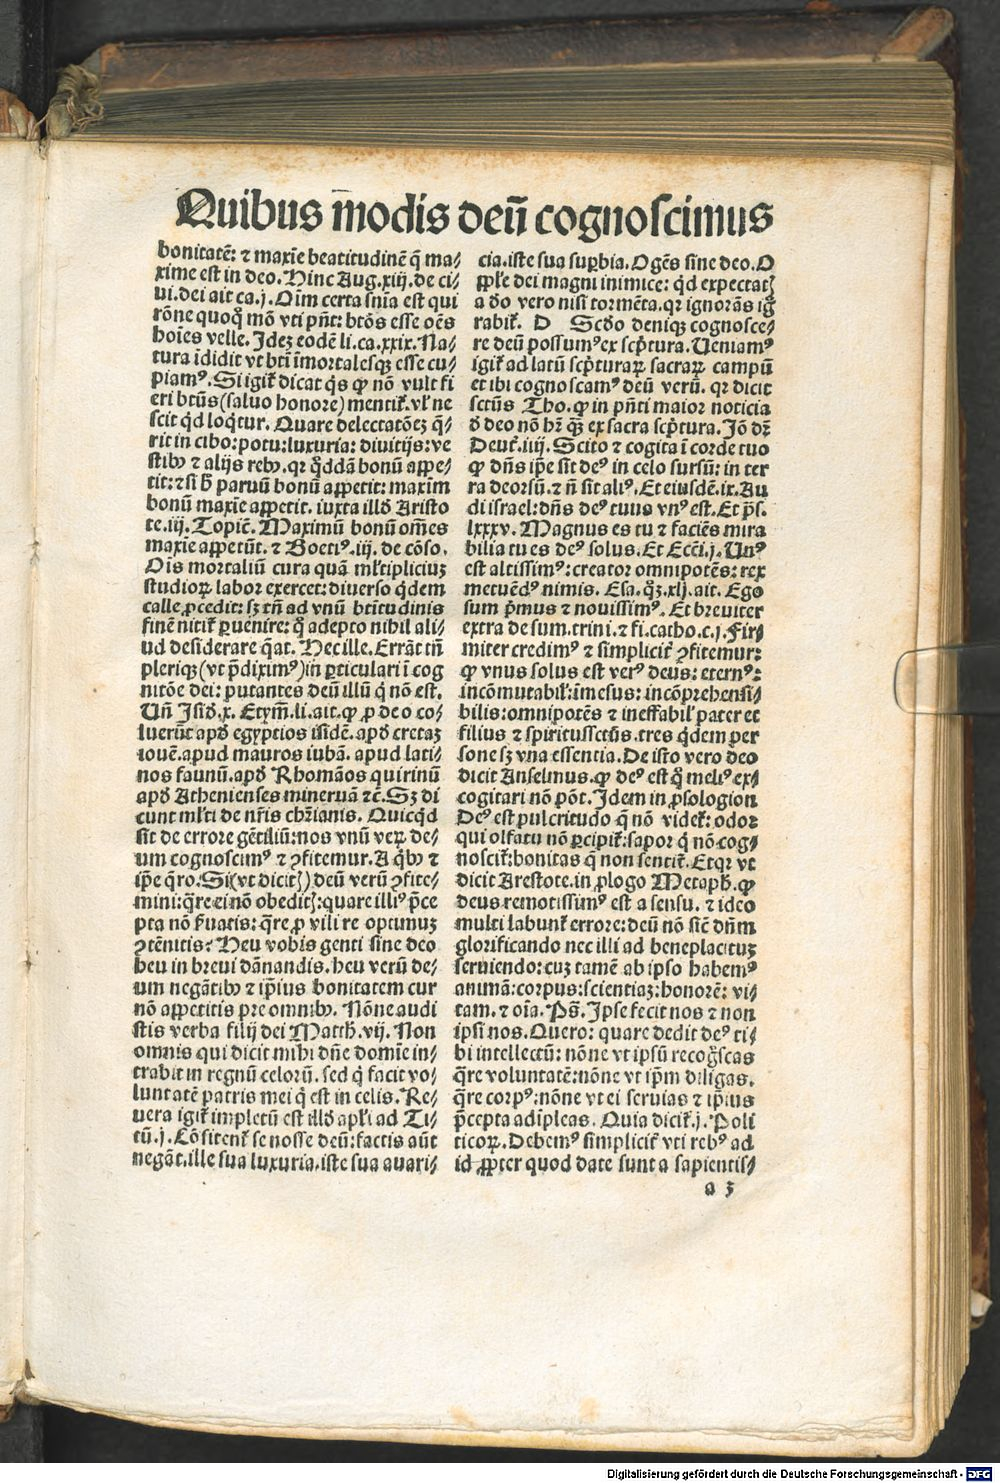 Quibus modis deū cognoscimus
bonitatē: ⁊ maxīe beatitudinē q̄ ma⸗
xime est in deo. Hinc Aug. xiij. de ci⸗
ui. dei ait ca. j. Oīm certa snīa est qui
rōne quoqꝫ mō vti pn̄t: btōs esse oēs
hoīes velle. Idez eodē li. ca. xxix. Na⸗
tura īdidit vt btī īmortalesqꝫ esse cu⸗
piamꝰ. Si igit̄ dicat q̇s ꝙ nō vult fi
eri btūs (saluo honore) mentit̄. vl̓ ne
scit qd̓ loq̇tur. Quare delectatōez q̄⸗
rit in cibo: potu: luxuria: diuitijs: ve
stibꝰ ⁊ alijs rebꝰ. qr q̇ddā bonū appe⸗
tit: ⁊ si h̓ paruū bonū appetit: maxim
bonū maxīe appetit. iuxta illd̓ Aristo
te. iij. Topic̄. Maximū bonū om̄es
maxīe appetūt. ⁊ Boetiꝰ. iij. de cōso.
Oīs mortaliū cura quā ml̓tipliciuꝫ
studioꝝ labor exercet: diuerso q̇dem
calle ꝓcedit: sꝫ tn̄ ad vnū btītudinis
finē nitit̄ ꝑuenire: q̊ adepto nihil ali⸗
ud desiderare q̄at. Hec ille. Errāt tn̄
pleriqꝫ (vt p̄diximꝰ) in ꝑticulari ī cog
nitōe dei: putantes deū illū q̇ nō est.
Un̄ Isid̓. x. Etym̄. li. ait. ꝙ ꝓ deo co⸗
luerūt apd̓ egyptios isidē. apd̓ cretaꝫ
iouē. apud mauros iubā. apud lati⸗
nos faunū. apd̓ Rhomāos quirinū
apd̓ Athenienses mineruā ⁊c̄. Sꝫ di
cunt ml̓ti de nr̄is chr̄ianis. Quicq̇d
sit de errore gētiliū: nos vnū veꝝ de⸗
um cognoscimꝰ ⁊ ꝯfitemur. A q̇bꝰ ⁊
ip̄e q̄ro. Si (vt dicitꝭ) deū verū ꝯfite⸗
mini: q̄re ei nō obeditꝭ: quare illiꝰ p̄ce
pta nō ẜuatis: q̄re ꝓ vili re optimuꝫ
ꝯtēnitis? Heu vobis genti sine deo
heu in breui dānandis. heu verū de⸗
um negātibꝰ ⁊ ip̄ius bonitatem cur
nō appetitis pre omnibꝰ. Nōne audi
stis verba filij dei Matth̓. vij. Non
omnis qui dicit mihi dn̄e domīe in⸗
trabit in regnū celorū. sed q̇ facit vo⸗
luntatē patris mei q̇ est in celis. Re⸗
vera igit̄ impletū est illd̓ apl̓i ad Ti⸗
tū. j. Cōfitent̄ se nosse deū: factis aūt
negāt. ille sua luxuria. iste sua auari⸗
cia. iste sua suꝑbia. O gēs sine deo. O
ppl̓e dei magni inimice: qd̓ expectatꝭ
a d̓o vero nisi tormēta. qr ignorās ig̊
rabit̄. D Scd̓o deniqꝫ cognosce⸗
re deū possumꝰ ex scp̄tura. Ueniamꝰ
igit̄ ad latū scp̄turaꝝ sacraꝝ campū
et ibi cognoscamꝰ deū verū. qr dicit
sctūs Tho. ꝙ in pn̄ti maior noticia
d̓ deo nō hr̄ qꝫ ex sacra scp̄tura. Iō dr̄
Deut̄. iiij. Scito ⁊ cogita ī corde tuo
ꝙ dn̄s ip̄e sit deꝰ in celo sursū: in ter
ra deorsū. ⁊ n̄ sit aliꝰ. Et eiusdē. ix. Au
di israel: dn̄s deꝰ tuus vnꝰ est. Et pṡ.
lxxxv. Magnus es tu ⁊ faciēs mira
bilia tu es deꝰ solus. Et Ecc̄i. j. Unꝰ
est altissimꝰ: creator omnipotēs: rex
metuēdꝰ nimis. Esa. q̇ꝫ. xlj. ait. Ego
sum p̄mus ⁊ nouissimꝰ. Et breuiter
extra de sum. trini. ⁊ fi. catho. c. j. Fir⸗
miter credimꝰ ⁊ simplicit̄ ꝯfitemur:
ꝙ vnus solus est verꝰ deus: eternꝰ:
incōmutabil̓: īmēsus: incōprehensi⸗
bilis: omnipotēs ⁊ ineffabil̓ pater et
filius ⁊ spiritussctūs. tres q̇dem per
sone sꝫ vna essentia. De isto vero deo
dicit Anselmus. ꝙ deꝰ est q̊ meliꝰ ex⸗
cogitari nō pōt. Idem in ꝓsologion
Deꝰ est pulcritudo q̄ nō videt̄: odor
qui olfatu nō ꝑcipit̄: sapor q̇ nō cog⸗
noscit̄: bonitas q̄ non sentit̄. Et qr vt
dicit Arestote. in ꝓlogo Metaph̓. ꝙ
deus remotissimꝰ est a sensu. ⁊ ideo
multi labunt̄ errore: deū nō sic̄ dn̄m
glorificando nec illi ad beneplacituꝫ
seruiendo: cuꝫ tamē ab ipso habemꝰ
animā: corpus: scientiaꝫ: honorē: vi⸗
tam. ⁊ oīa. Pṡ. Ipse fecit nos ⁊ non
ipsi nos. Quero: quare dedit deꝰ ti⸗
bi intellectū: nōne vt ipsū recog̊scas
q̄re voluntatē: nōne vt ip̄m diligas.
q̄re corpꝰ: nōne vt ei seruias ⁊ ip̄ius
p̄cepta adīpleas. Quia dicit̄. j. Poli
ticoꝝ. Debemꝰ simplicit̄ vti rebꝰ ad
id ꝓpter quod date sunt a sapientis⸗
a 3
Digitalisierung gefördert durch die Deutsche Forschungsgemeinschaft - DFG